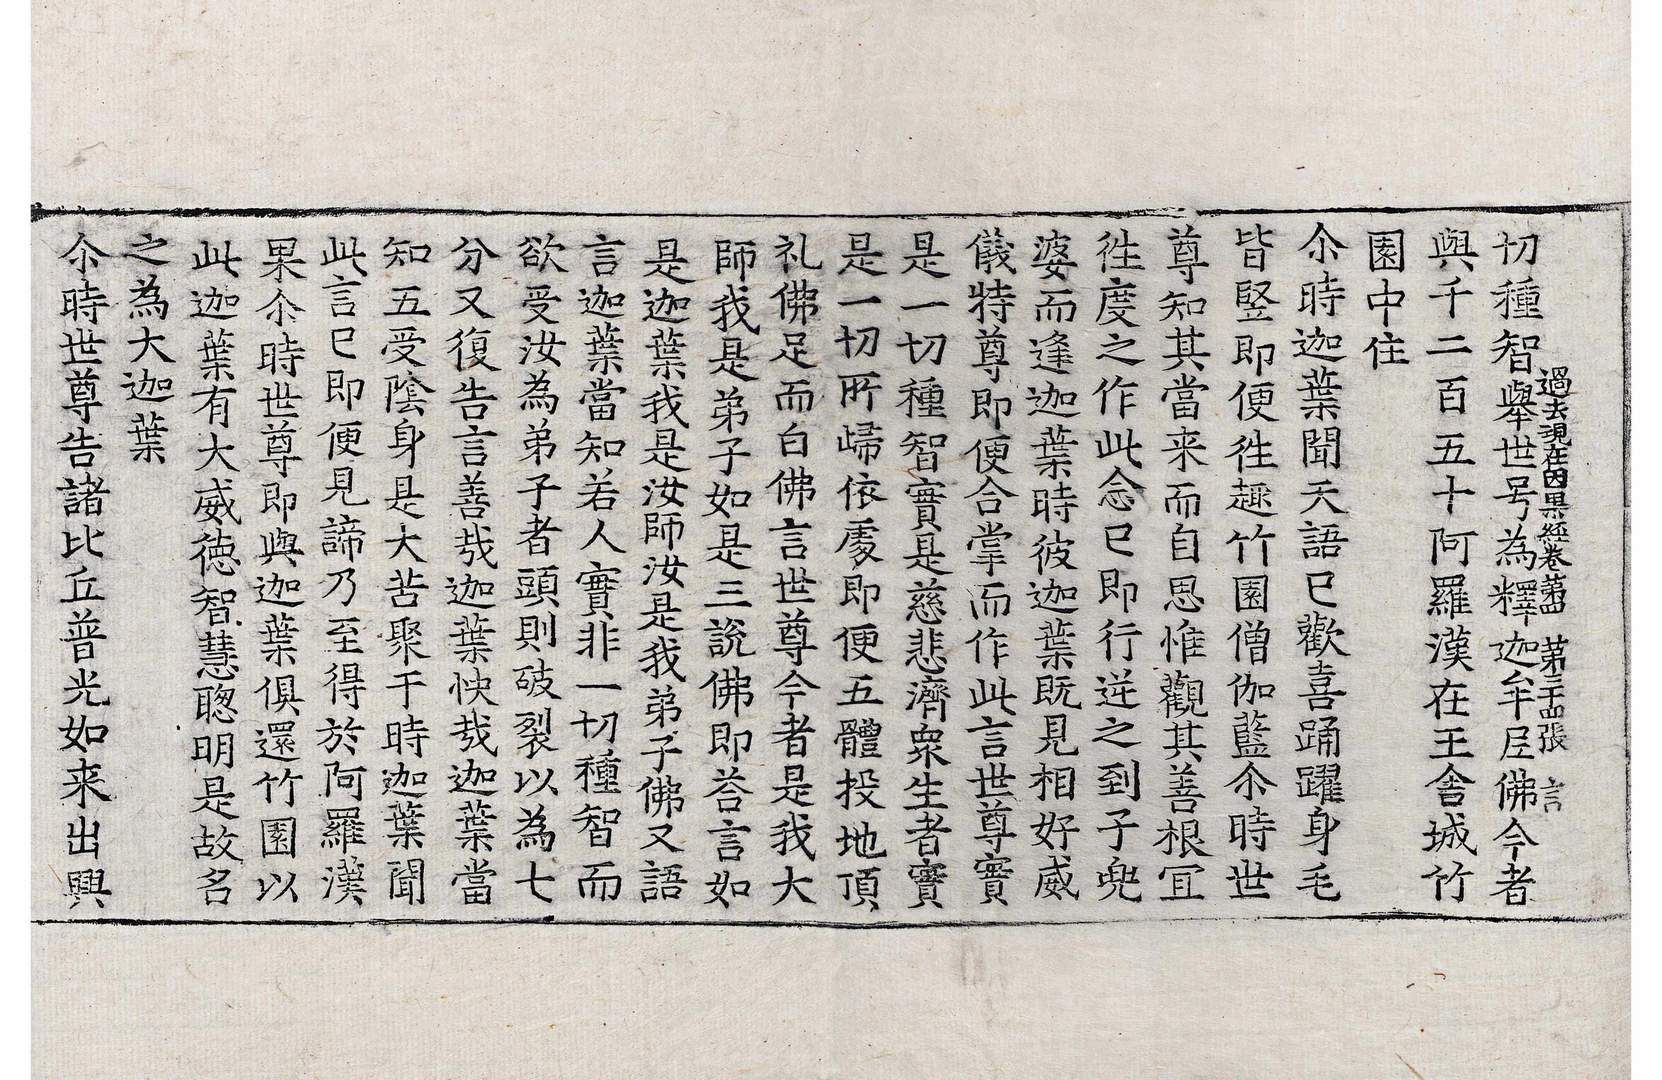 過去現在因果經卷第四　第三十四張　言
切種智舉世号為釋迦牟尼佛今者
與千二百五十阿羅漢在王舍城竹
園中住
尒時迦葉聞天語已歡喜踊躍身毛
皆竪即便徃趣竹園僧伽藍尒時世
尊知其當来而自思惟觀其善根冝
徃度之作此念已即行逆之到子兜
婆而逢迦葉時彼迦葉既見相好威
儀特尊即便合掌而作此言世尊實
是一切種智實是慈悲濟衆生者實
是一切所歸依處即便五體投地頂
礼佛足而白佛言世尊今者是我大
師我是弟子如是三說佛即荅言如
是迦葉我是汝師汝是我弟子佛又語
言迦葉當知若人實非一切種智而
欲受汝為弟子者頭則破裂以為七
分又復告言善哉迦葉快哉迦葉當
知五受陰身是大苦聚于時迦葉聞
此言已即便見諦乃至得於阿羅漢
果尒時世尊即與迦葉俱還竹園以
此迦葉有大威徳智慧聦明是故名
之為大迦葉
尒時世尊告諸比丘普光如来出興